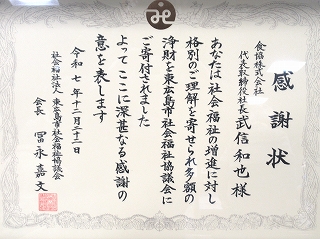 感謝状
食協株式会社
代表取締役社長 武信和也 様
あなたは社会福祉の増進に対し
格別のご理解を寄せられ多額の
浄財を東広島市社会福祉協議会に
ご寄付されました
よってここに深甚なる感謝の
意を表します
令和七年十二月二十二日
社会福祉法人 東広島市社会福祉協議会
会長 冨永嘉文